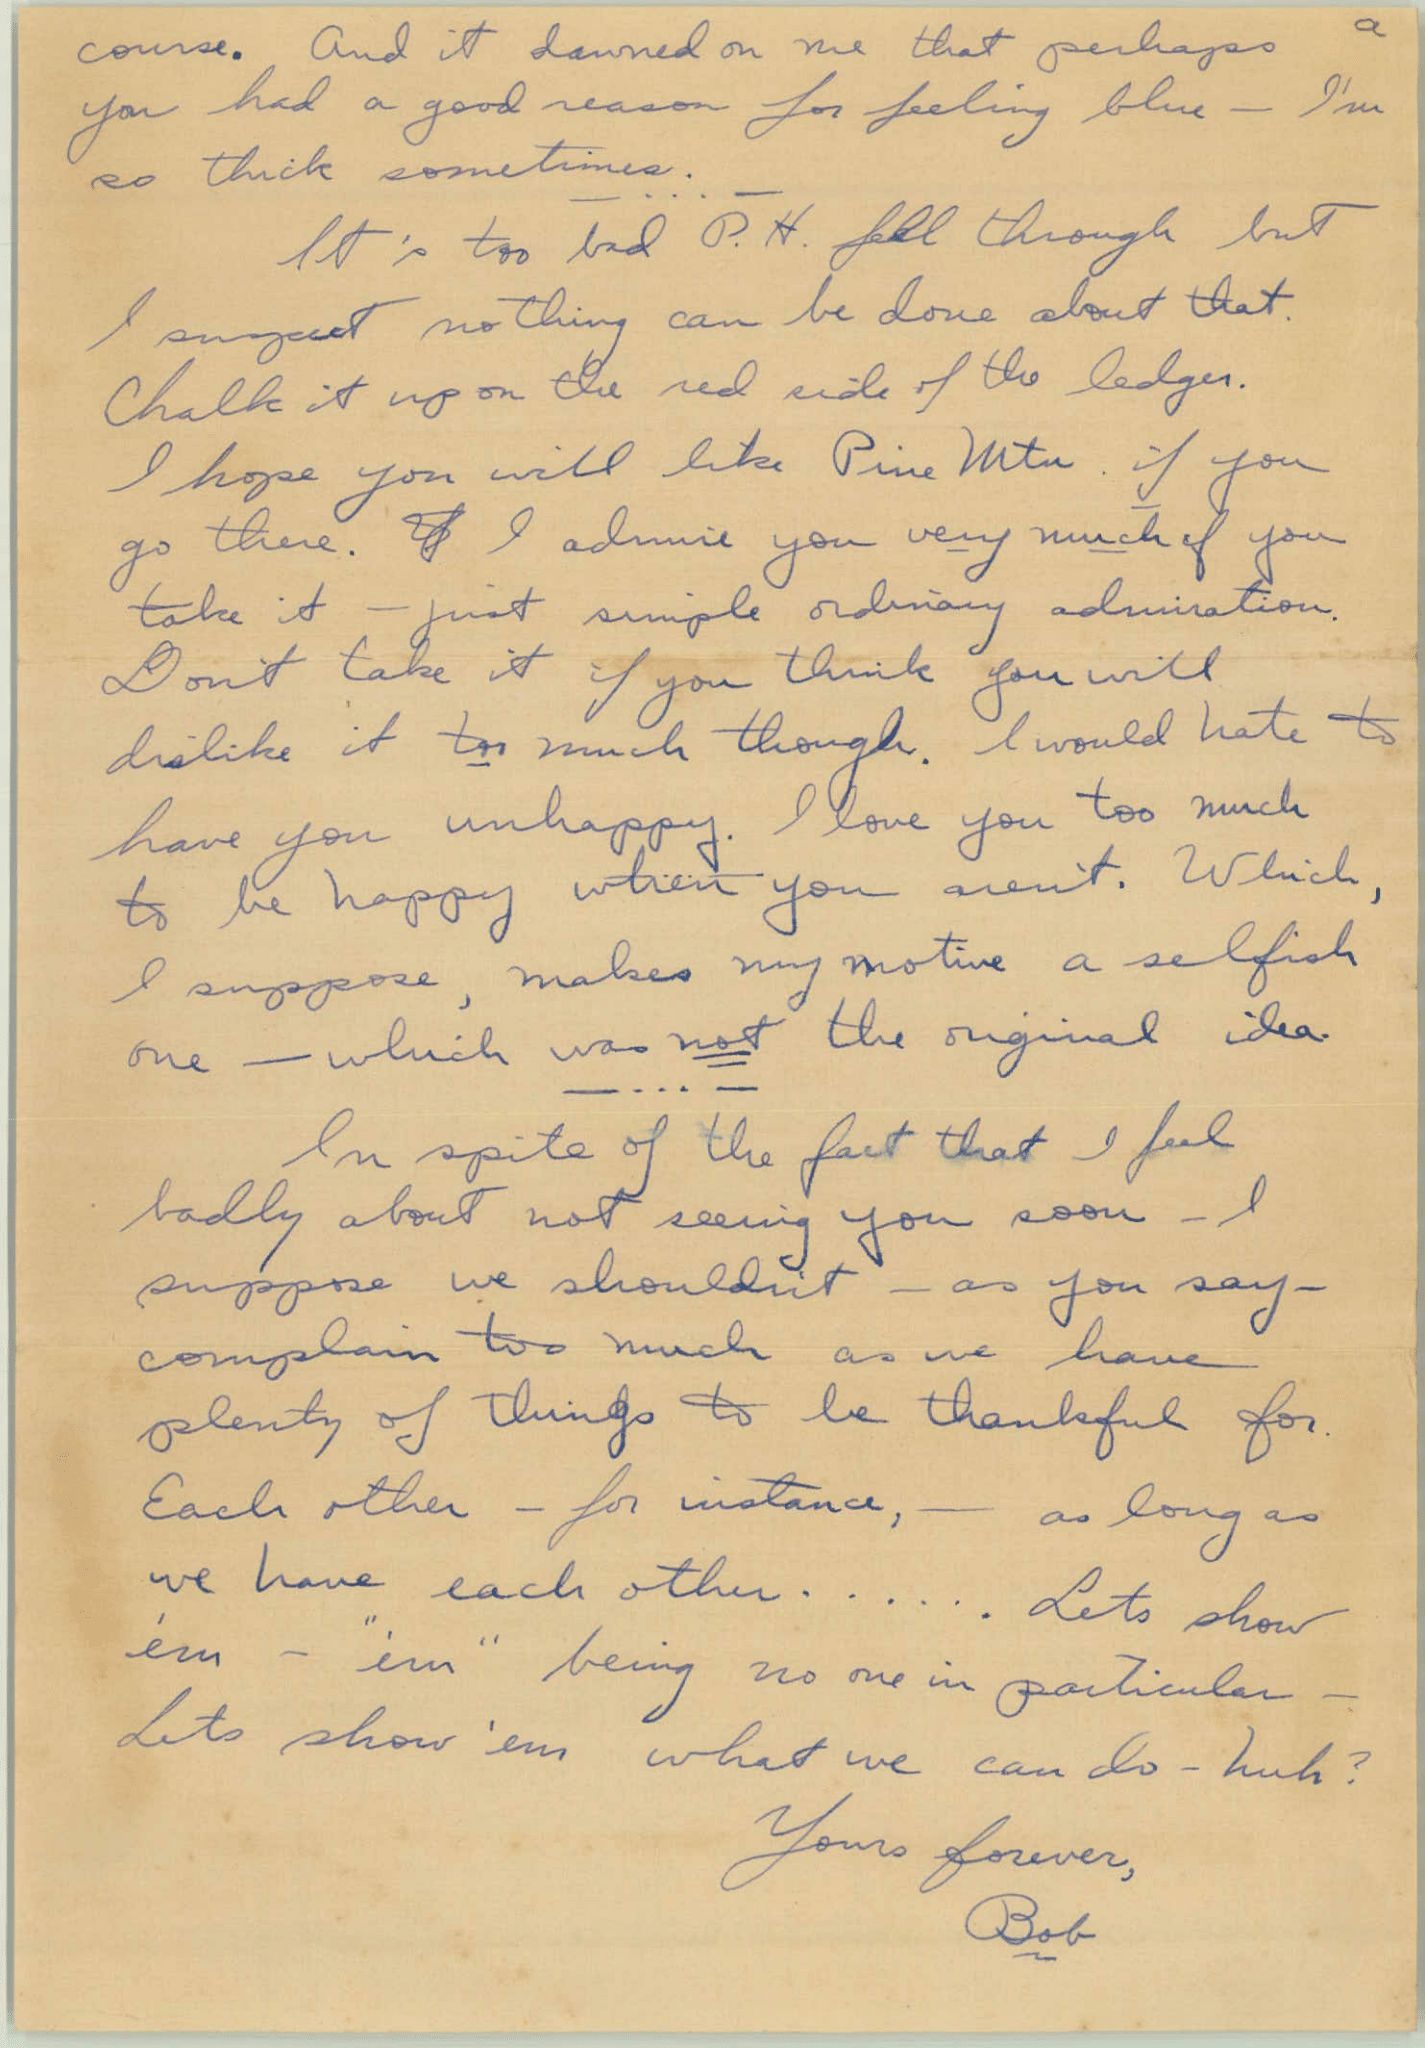 a
course. And it dawned on me that perhaps
you had a good reason for feeling blue — I'm
so thick sometimes.
— . . . —
It's too bad P. H. fell through but
I suspect nothing can be done about that.
Chalk it up on the red side of the ledger.
I hope you will like Pine Mtn. if you
go there. If I admire you very much if you
take it — just simple ordinary admiration.
Don't take it if you think you will
dislike it too much though. I would hate to
have you unhappy. I love you too much
to be happy when you aren't. Which,
I suppose, makes my motive a selfish
one — which was not the original idea.
— . . . —
In spite of the fact that I feel
badly about not seeing you soon — I
suppose we shouldn't — as you say —
complain too much as we have
plenty of things to be thankful for.
Each other — for instance, — as long as
we have each other. . . . . . Lets show
'em — "'em" being no one in particular —
Lets show 'em what we can do — huh?
Yours forever,
Bob